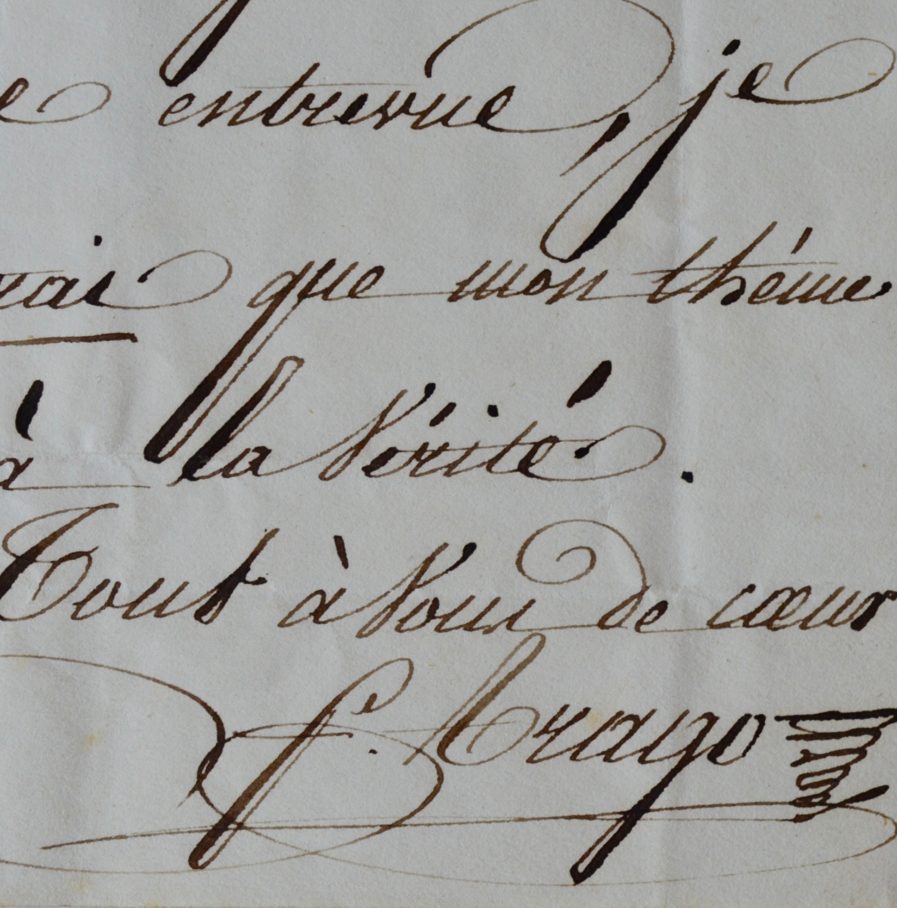 e entrevue, je
rai que mon théme
à la Vérité.
Tout à Vous de cœur
f. Arago